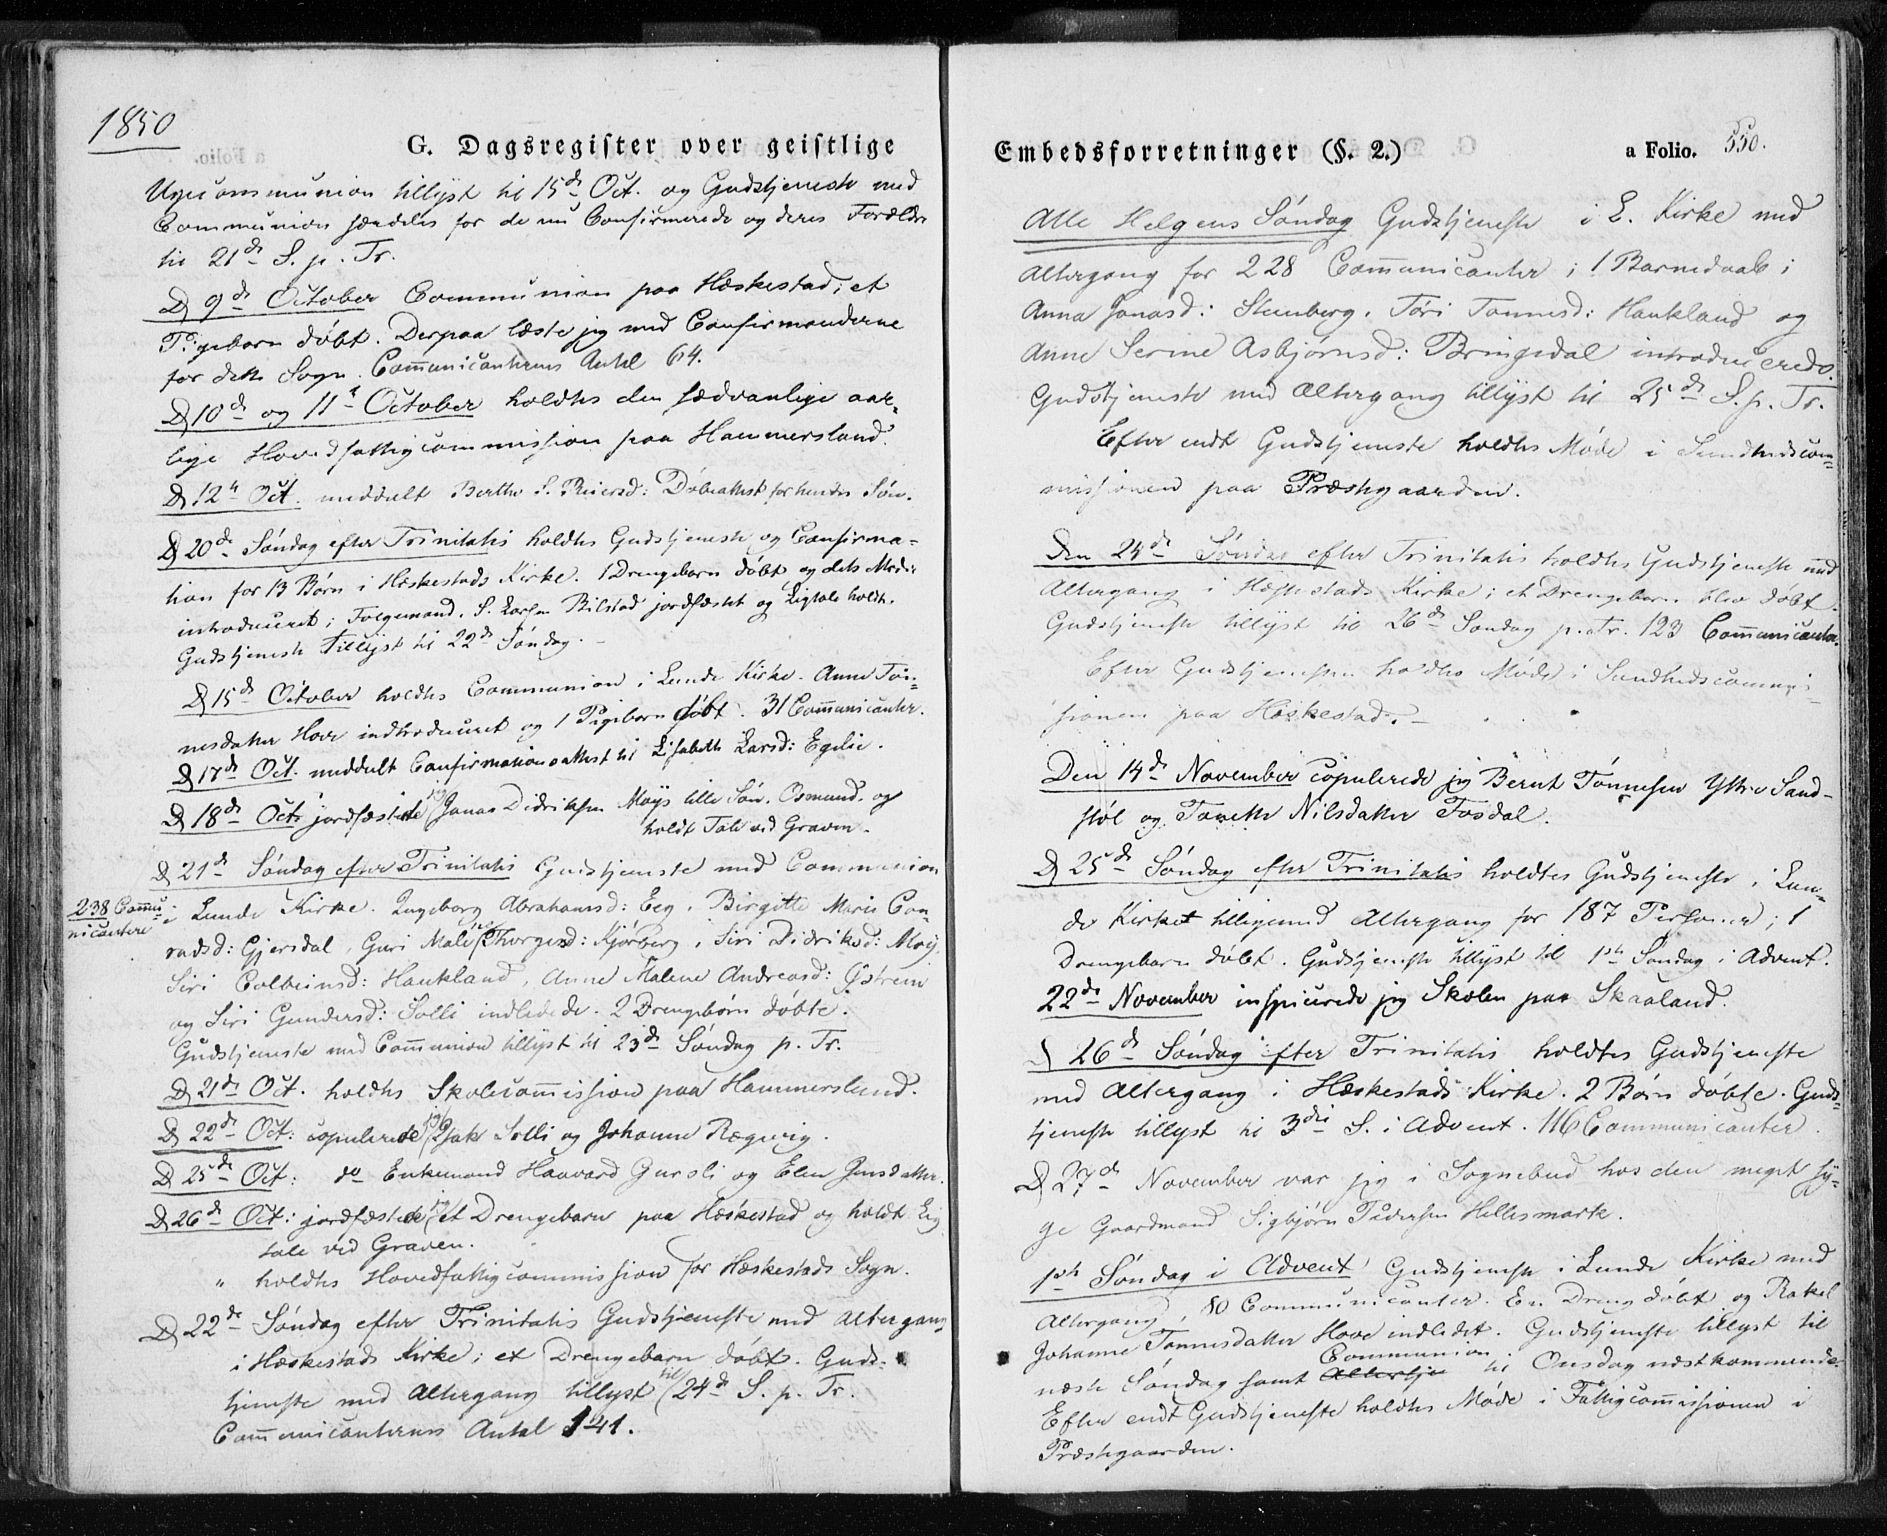 1850
G. Dagsregister over geistlige
Ugecommunion tillyst til 15de Oct. og Gudstjeneste med
Communion særdeles for de nu Confirmerede og deres Forældre
til 21de S. p. Tr.
D 9de October Communion paa Heskestad; et
Pigebarn døbt. Derpaa læste jeg med Confirmanderne
for dette Sogn. Com̅unicanternes Antal 64.
D 10de og 11te October holdtes den sædvanlige aar-
lige Hovedfattigcommission paa Hammersland.
D 12te Oct. meddelt Berthe S. Døbeattest for hendes Søn.
D 20de Søndag efter Trinitatis holdtes Gudstjeneste og Confirma-
tion for 13 Børn i Heskestads Kirke. 1 Drengebarn døbt og dets Moder
introduceret; Folgemand. S. Larsen Bilstad jordfæstet og Ligtale holdt.
Gudstjeneste tillyst til 22de Søndag.
D 15de October holdtes Communion i Lunde Kirke. Anne Tøn-
nesdatter Hove indtroduceret og 1 Pigebarn døbt. 31 Com̅unicanter.
D 17de Oct. meddelt Confirmationsattest til Lisabeth Larsd: Egelie.
D 18de Oct. jordfæstede jeg Jonas Didriksen Moys lille Søn. Osmund. og
holdt Tale ved Graven.
D 21de Søndag efter Trinitatis Gudstjeneste med Communion
238 Com̅u-
nicantere
i Lunde Kirke. Ingeborg Abrahamsd: Eeg, Birgitte Marie Con-
radsd: Gjersdal, Guri Malene Thorgersd: Kjørberg, Siri Didriksd: Moy,
Siri Colbeinsd: Haukland, Anne Malene Andreasd: Ystrem
og Siri Gundersd: Solli indledede. 2 Drengebørn døbte.
Gudstjeneste med Com̅union tillyst til 23de Søndag p. Tr.
D 21de Oct. holdtes Skolecom̅ission paa Hammersland.
D 22de Oct: copulerede jeg Isak Solli og Johanne Rægevig.
D 25de Oct: do Enkemand Haavard Gursli og Elen Jensdatter.
D 26de Oct: jordfæstede jeg et Drengebarn paa Heskestad og holdt Lig
tale ved Graven.
" holdtes Hovedfattigcommission for Heskestads Sogn.
D 22de Søndag efter Trinitatis Gudstjeneste med Altergang
i Heskestads Kirke; et Drengebarn døbt. Guds-
tjeneste med Altergang tillyst til 24de S. p. Tr.
Com̅unicanternes Antal 121.
Embedsforretninger (§. 2.)
a Folio. 550.
Alle Helgens Søndag Gudstjeneste i L. Kirke med
Altergang for 228 Com̅unicanter; 1 Barnedaab;
Anna Jonasd: Steinberg, Tøri Tønnesd: Haukland og
Anne Serine Asbjørnsd: Bringedal introduceredes.
Gudstjeneste med Altergang tillyst til 25de S. p. Tr.
Efter endt Gudstjeneste holdtes Møde i Sundhedscom-
missionen paa Præstegaarden.
Den 24de Søndag efter Trinitatis holdtes Gudstjeneste med
Altergang i Heskestads Kirke; et Drengebarn blev døbt.
Gudstjeneste tillyst til 26de Søndag p. Tr. 123 Com̅unicanter.
Efter Gudstjenesten holdtes Møde i Sundhedscommis-
sionen paa Heskestad.
Den 14de November copulerede jeg Bernt Tønnesen Ystre Sand-
støl og Tonette Nilsdatter Fosdal.
D 25de Søndag efter Trinitatis holdtes Gudstjeneste i Lun-
de Kirke tilligemed Altergang for 187 Personer; 1
Drengebarn døbt. Gudstjeneste tillyst til 1ste Søndag i Advent.
22de November inspicerede jeg Skolen paa Skaaland.
D 26de Søndag efter Trinitatis holdtes Gudstjeneste
med Altergang i Heskestads Kirke. 2 Børn døbte. Guds-
tjeneste tillyst til 3die S. i Advent. 116 Communicanter.
D 27de November var jeg i Sognebud hos den meget sy-
ge Gaardmand Sigbjørn Pedersen Hellesmark.
1ste Søndag i Advent Gudstjeneste i Lunde Kirke med
Altergang, 80 Communicanter. En Dreng døbt og Rakel
Johanne Tønnesdatter Hove indledet. Gudstjeneste tillyst til
næste Søndag samt Communion til Onsdag næstkommende.
Efter endt Gudstjeneste holdtes Møde i Fattigcom̅issionen i
Præstegaarden.